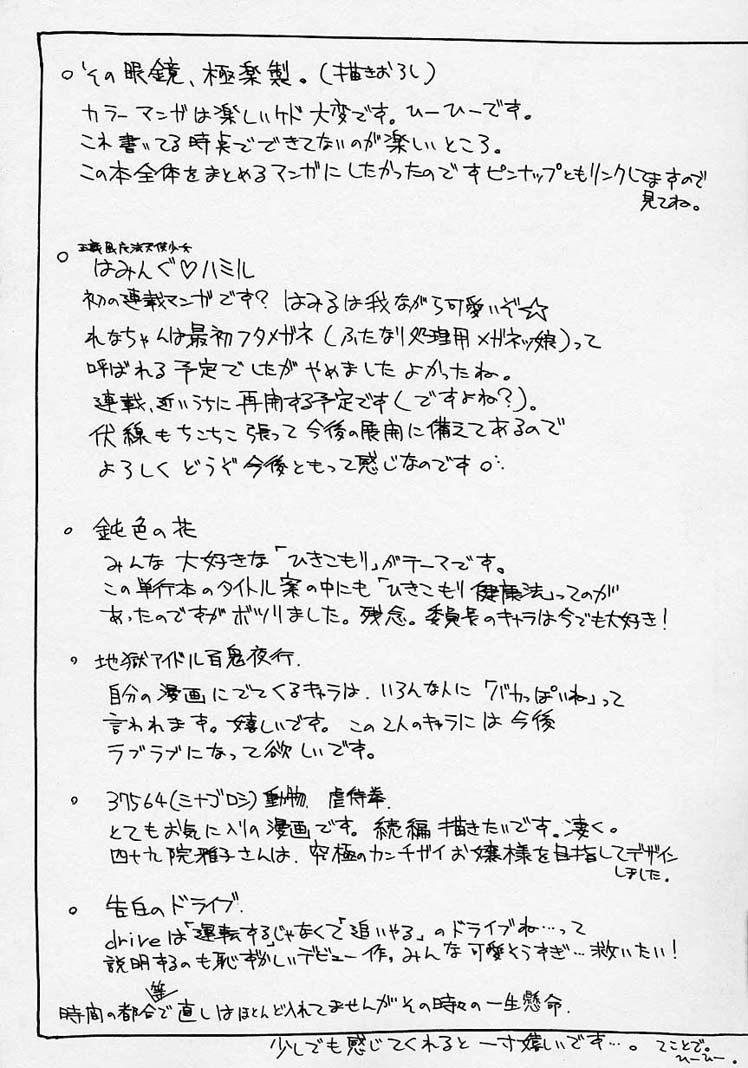 ○ その眼鏡、極楽製。(描きおろし)
カラーマンガは楽しいケド大変です。ひーひーです。
これ書いてる時点でできてないのが楽しいところ。
この本全体をまとめるマンガにしたかったのですピンナップともリンクしてますので
見てね。
○ はみんぐ♡ハミル
初の連載マンガです? はみるは我ながら可愛いぞ☆
れなちゃんは最初フタメガネ(ふたなり処理用メガネッ娘)って
呼ばれる予定でしたがやめましたよかったね。
連載、近いうちに再開する予定です(ですよね?)。
伏線もちこちこ張って今後の展開に備えてあるので
よろしくどうぞ今後ともって感じなのです
○ 鈍色の花
みんな大好きな「ひきこもり」がテーマです。
この単行本のタイトル案の中にも「ひきこもり健康法」ってのが
あったのですがボツりました。残念。委員長のキャラは今でも大好き!
○ 地獄アイドル百鬼夜行.
自分の漫画にでてくるキャラは、いろんな人に「バカっぽいね」って
言われます。嬉しいです。この2人のキャラには今後
ラブラブになって欲しいです。
○ 37564(ミナゴロシ)動物 虐待拳.
とてもお気に入りの漫画です。続編描きたいです。凄く。
四十九院雅子さんは、究極のカンチガイお嬢様を目指してデザイン
しました。
○ 告白のドライブ.
driveは「運転する」じゃなくて「追いやる」のドライブね…って
説明するのも恥ずかしいデビュー作。みんな可愛そうすぎ…救いたい!
時間の都合等で直しはほとんど入れてませんがその時々の一生懸命.
少しでも感じてくれると一寸嬉しいです…。てことで。
ひーひー.